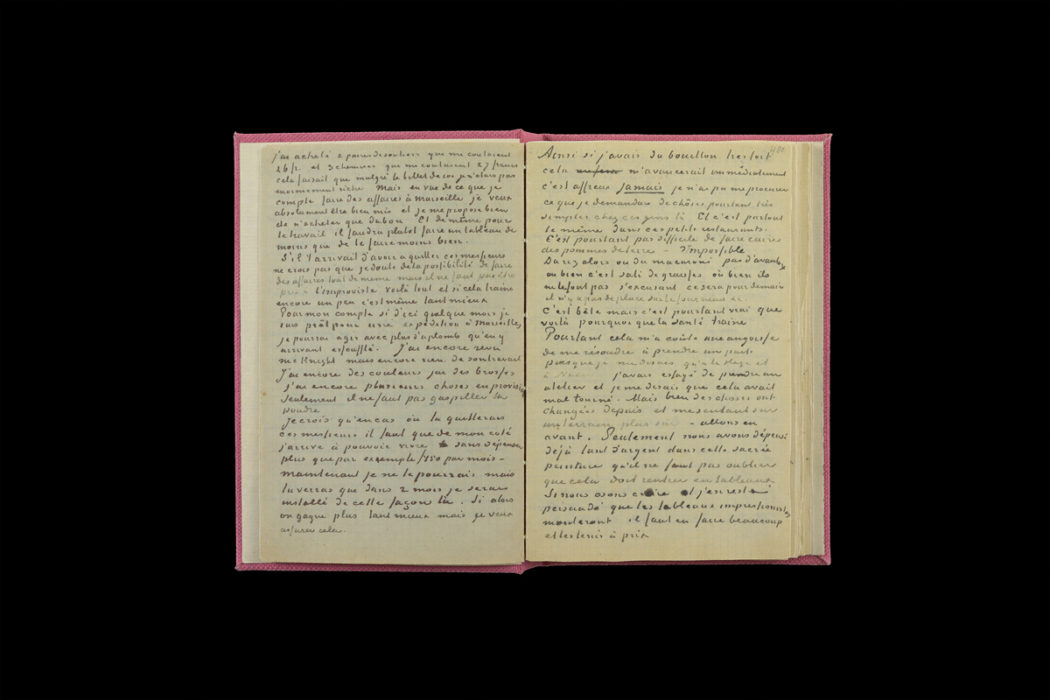 j'ai acheté 2 paires de souliers qui m'ont coutaient
26 fr et 3 chemises qui me coutaient 27 francs
cela faisait que malgré le billet de 100 je n'étais pas
enormement riche Mais en vue de ce que je
compte faire des affaires à Marseille je veux
absolument être bien mis et je me propose bien
de n'acheter que du bon Et de même pour
le travail il faudra plutot faire un tableau de
moins que de le faire moins bien.
S'il t'arrivait d'avoir a quitter ces messieurs
ne crois pas que je doute de la possibilité de faire
des affaires tout de même mais il ne faut pas etre
pris à l'improviste voilà tout et si cela traine
encore un peu c'est même tant mieux
Pour mon compte si d'ici quelque mois je
suis prêt pour une expédition à Marseille,
je pourrai agir avec plus d'aplomb qu'en y
arrivant essoufflé. J'ai encore revu
mc Knight mais encore rien de son travail
J'ai encore des couleurs j'ai des brosses
j'ai encore plusieurs choses en provision
seulement il ne faut pas gaspiller la
poudre
Je crois qu'en cas où tu quitterais
ces messieurs il faut que de mon coté
j'arrive à pouvoir vivre sans dépenser
plus que par exemple 150 par mois –
maintenant je ne le pourrais mais
tu verras que dans 2 mois je serai
installé de cette façon là. Si alors
on gagne plus tant mieux mais je veux
assurer cela.
Ainsi si j'avais du bouillon tres fort
cela m'avancerait immediatement
c'est affreux jamais je n'ai pu me procurer
ce que je demandais de choses pourtant très
simples chez ces gens là Et c'est partout
le même dans ces petits restaurants.
C'est pourtant pas difficile de faire cuire
des pommes de terre – Impossible
Du riz alors ou du macaroni pas d'avantage
ou bien c'est sali de graisse ou bien ils
ne le font pas s'excusant ce sera pour demain
il n'y a pas de place sur le fourneau etc.
C'est bête mais c'est pourtant vrai que
voilà pourquoi que la santé traine
Pourtant cela m'a coûté une angoisse
de me résoudre à prendre un parti
puisque je me disais qu'à la Haye et
à Nuenen j'avais essayé de prendre un
atelier et je me disais que cela avait
mal tourné. Mais bien des choses ont
changées depuis et me sentant sur
un terrain plus sûr – allons en
avant. Seulement nous avons dépensé
déjà tant d'argent dans cette sacrée
peinture qu'il ne faut pas oublier
que cela doit rentrer en tableaux
Si nous osons croire et j'en reste
persuadé que les tableaux impressionistes
monteront il faut en faire beaucoup
et les tenir à prix